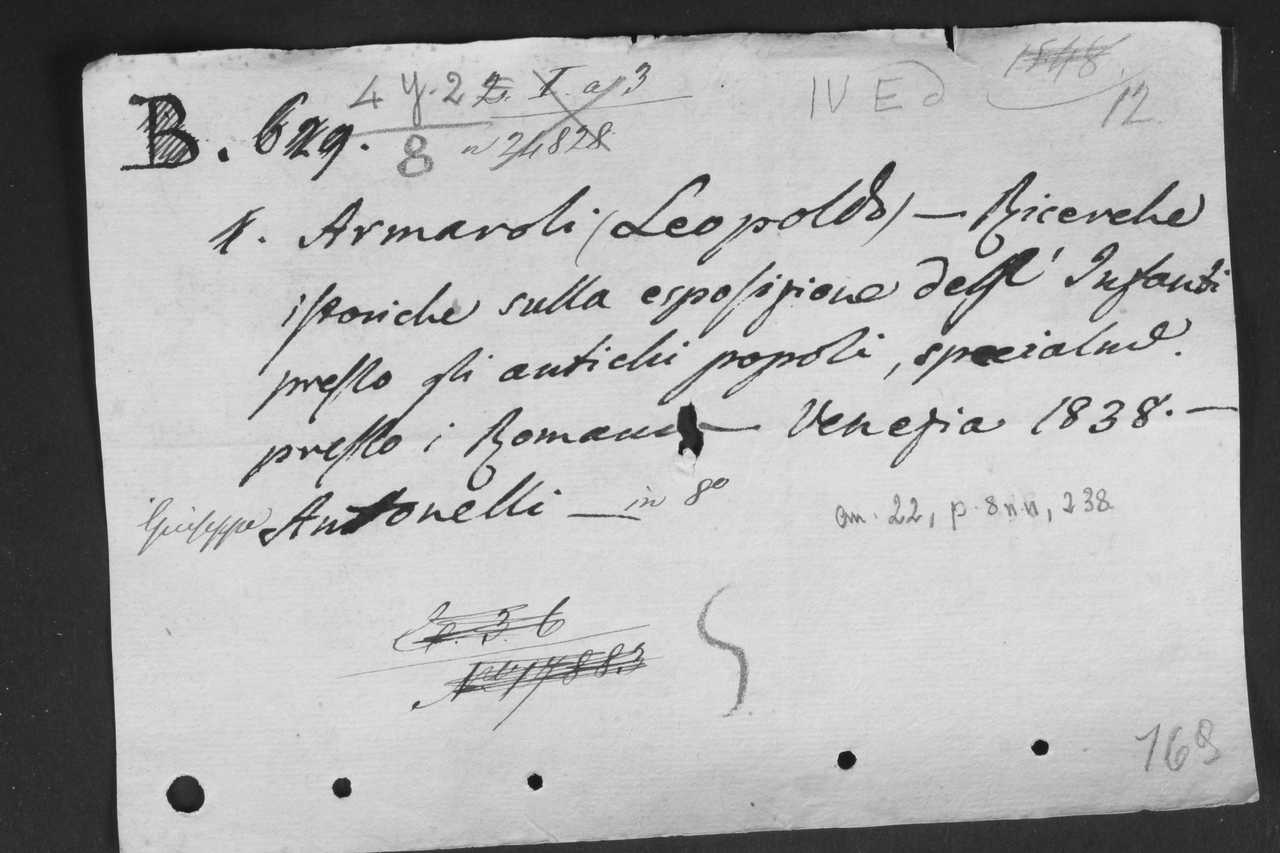 1848.
4 Y. 2 Z. I. a. 3 IV E d
B. 629. 8 n 24828 12.
Armaroli (Leopoldo) — Ricerche
istoriche sulla esposizione degl' Infanti
presso gli antichi popoli, specialme.
presso i Romani — Venezia 1838. —
Giuseppe Antonelli — in 8o
cm. 22, p. 8 nn, 238
3. 6
No. 17883
169